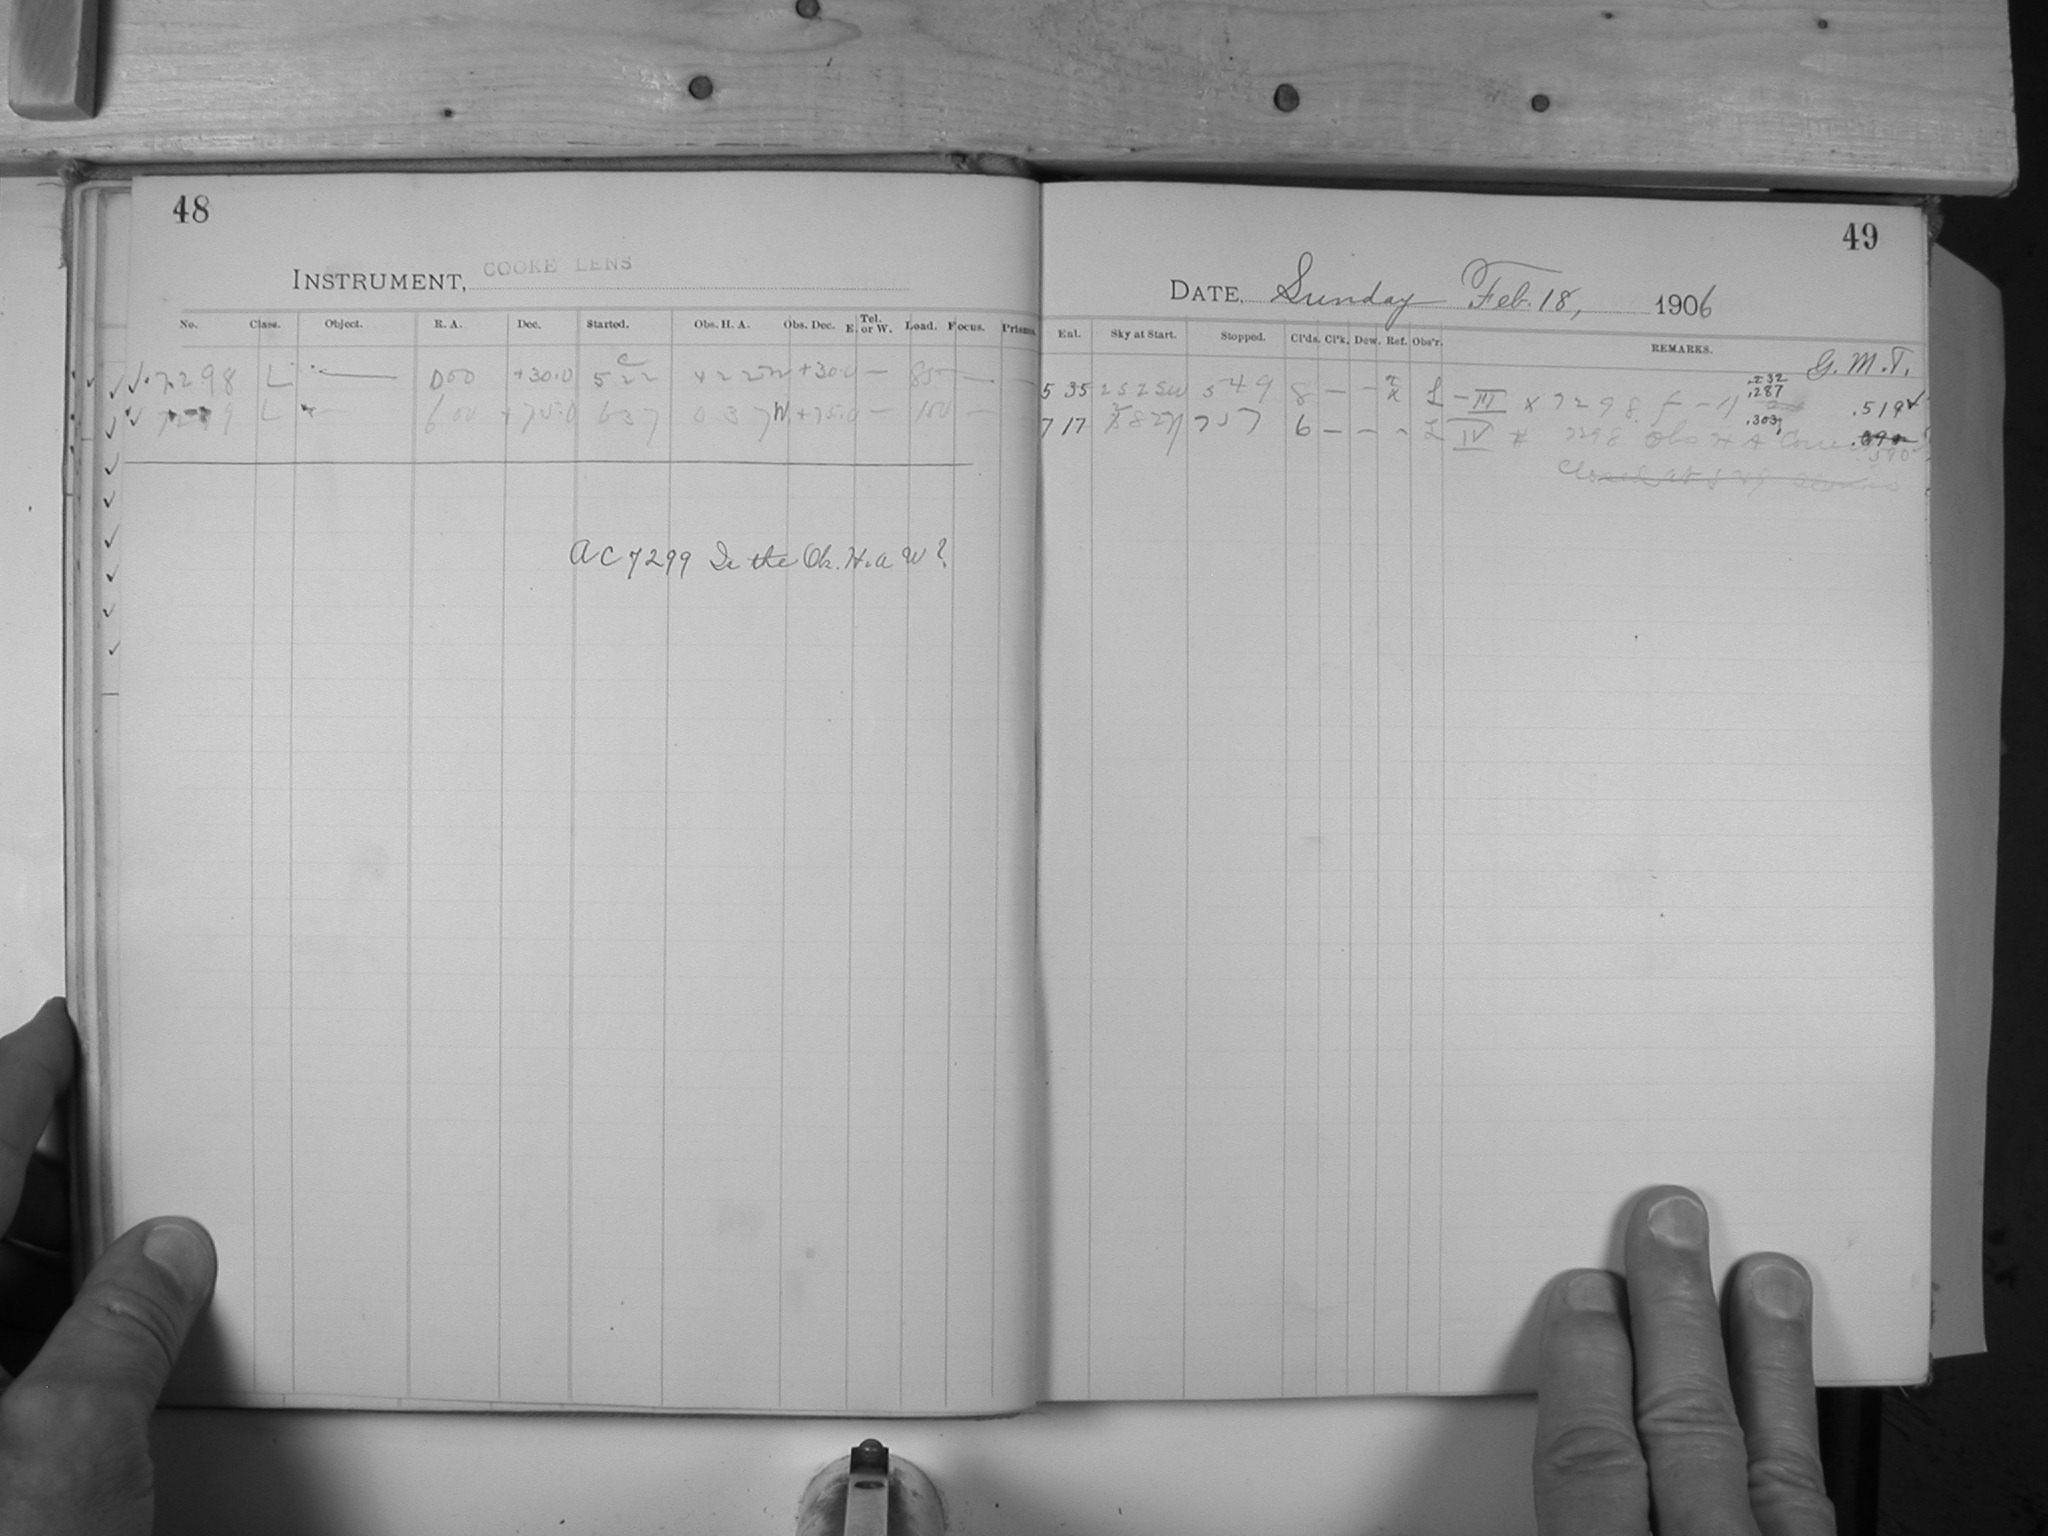 48
INSTRUMENT, COOKE LENS
No. Class. Object. R. A. Dec. Started. Obs. H. A. Obs. Dec. Tel. E. or W. Load. Focus. Prisms.
7298 L — 0 00 +30.0 5 22 4 22 W +30.0 — 85 — —
7299 L 6 00 +75.0 6 37 0 37 W +75.0 — 100 —
AC 7299 Is the Ob. H.A W?
49
DATE, Sunday Feb. 18, 1906
Ent. Sky at Start. Stopped. Cl'ds. Cl'k. Dew. Ref. Obs'r. REMARKS.
G. M. T.
5 35 2 5 2 SW 5 49 8 — — L — III × 7298 .232 .287 .519
7 17 7 57 6 — — - L IV # 7298 Obs H A .303 .590